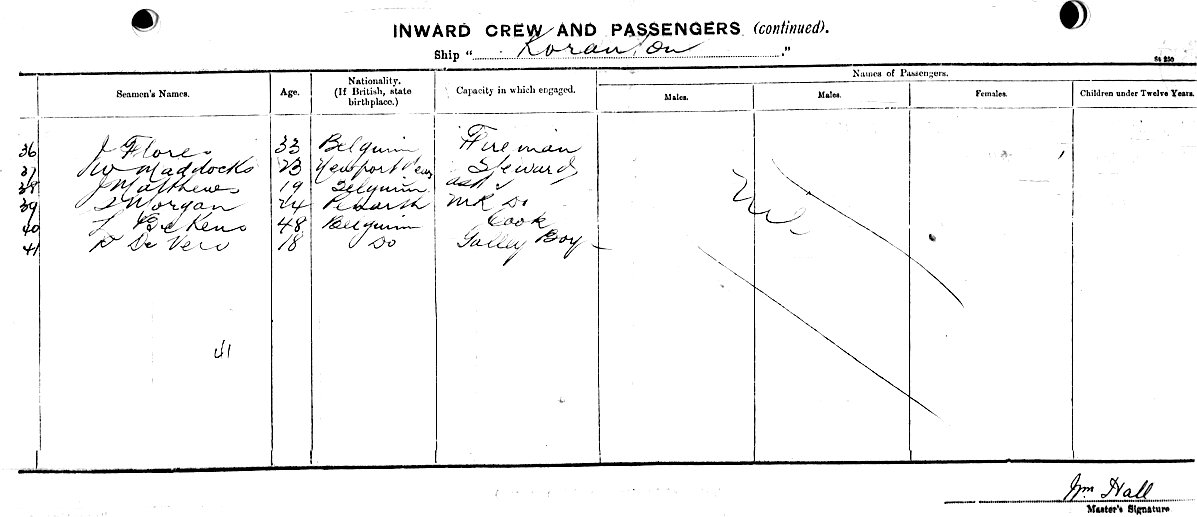 INWARD CREW AND PASSENGERS (continued).
Ship "Koranton"
Seamen's Names. Age. Nationality. (If British, state birthplace.) Capacity in which engaged. Names of Passengers.
Males. Males. Females. Children under Twelve Years.
36 J Flores 33 Belguim Fireman
37 W Maddocks 23 Newport Steward
38 J Matthews 19 Belguim asst
39 Morgan 24 Penarth Do
40 48 Belguim Cook
41 De Vero 18 Do Galley Boy
Nil
41
Wm Hall
Master's Signature